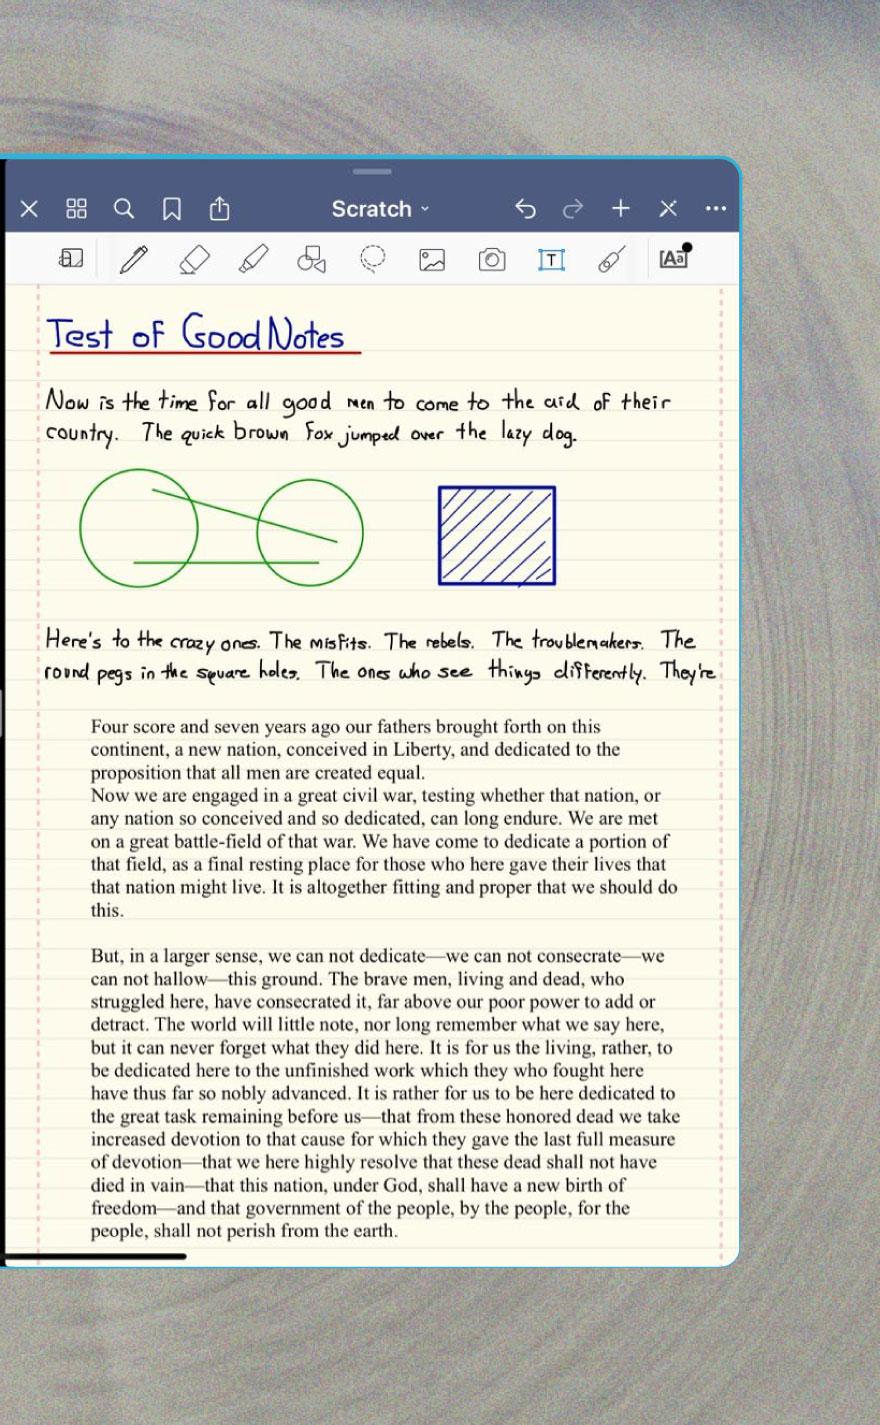 Scratch
T
Aa
Test of GoodNotes
Now is the time for all good men to come to the aid of their
country. The quick brown fox jumped over the lazy dog.
Here's to the crazy ones. The misfits. The rebels. The troublemakers. The
round pegs in the square holes. The ones who see things differently. They're
Four score and seven years ago our fathers brought forth on this
continent, a new nation, conceived in Liberty, and dedicated to the
proposition that all men are created equal.
Now we are engaged in a great civil war, testing whether that nation, or
any nation so conceived and so dedicated, can long endure. We are met
on a great battle-field of that war. We have come to dedicate a portion of
that field, as a final resting place for those who here gave their lives that
that nation might live. It is altogether fitting and proper that we should do
this.
But, in a larger sense, we can not dedicate—we can not consecrate—we
can not hallow—this ground. The brave men, living and dead, who
struggled here, have consecrated it, far above our poor power to add or
detract. The world will little note, nor long remember what we say here,
but it can never forget what they did here. It is for us the living, rather, to
be dedicated here to the unfinished work which they who fought here
have thus far so nobly advanced. It is rather for us to be here dedicated to
the great task remaining before us—that from these honored dead we take
increased devotion to that cause for which they gave the last full measure
of devotion—that we here highly resolve that these dead shall not have
died in vain—that this nation, under God, shall have a new birth of
freedom—and that government of the people, by the people, for the
people, shall not perish from the earth.